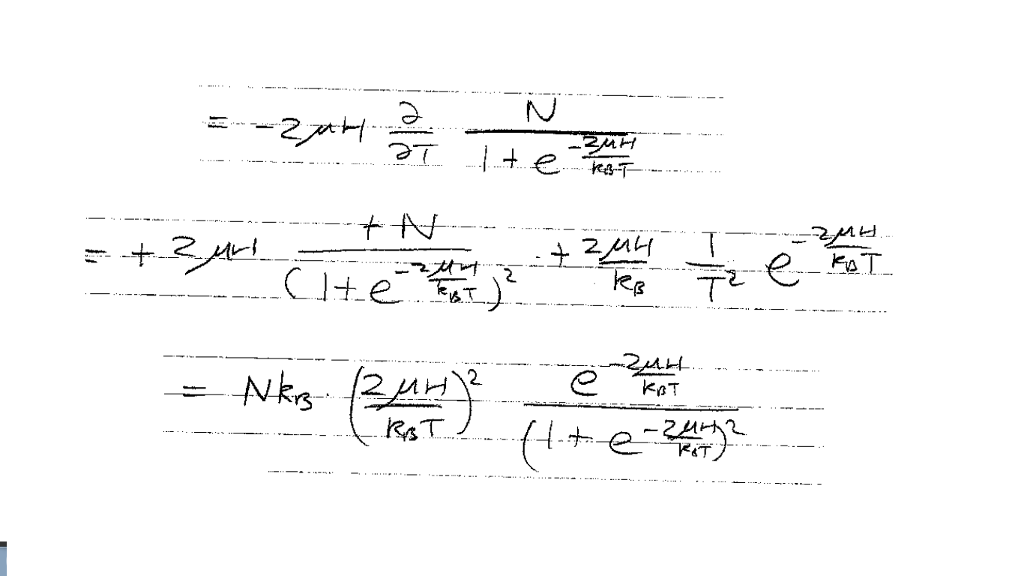 = -2μH ∂/∂T N/(1+e^(-2μH/k_BT))
= +2μH +N/(1+e^(-2μH/k_BT))² · +2μH/k_B 1/T² e^(-2μH/k_BT)
= Nk_B · (2μH/k_BT)² e^(-2μH/k_BT)/(1+e^(-2μH/k_BT))²